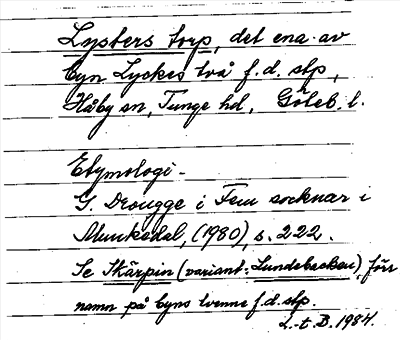 Lysbers torp, det ena av
byn Lyckes två f.d. stp,
Håby sn, Tunge hd, Göteb. l.
Etymologi -
G. Drougge i Fem socknar i
Munkedal, (1980), s. 222.
Se Skärpin (variant: Lundebacken), förs
namn på byns tvenne f.d. stp.
L-t. B. 1984.